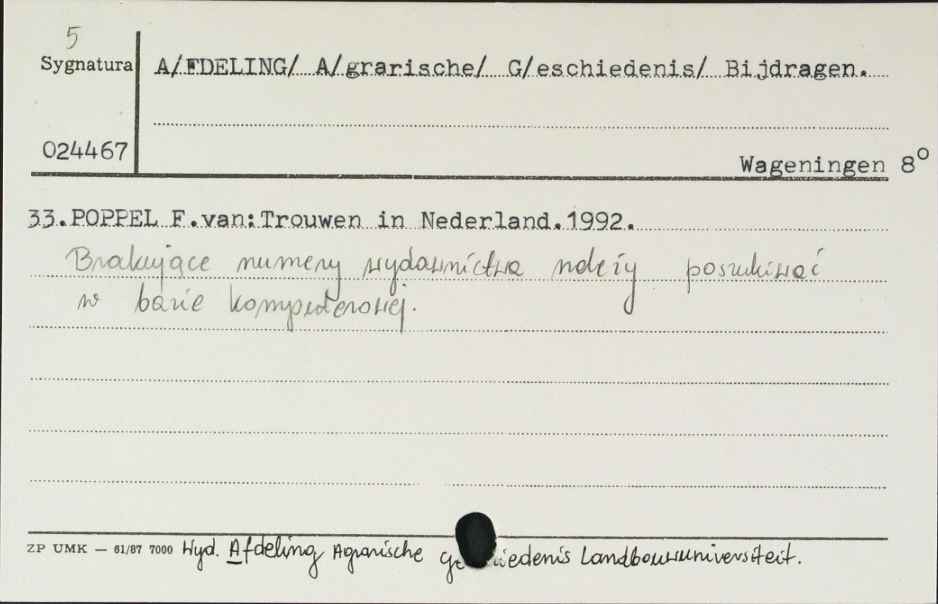 5
Sygnatura A/FDELING/ A/grarische/ G/eschiedenis/ Bijdragen.
024467
Wageningen 8°
33.POPPEL F.van:Trouwen in Nederland.1992.
Brakujące numery wydawnictwa należy poszukiwać
w bazie komputerowej.
ZP UMK — 61/87 7000 Wyd. Afdeling Agrarische Geschiedenis Landbouwuniversiteit.